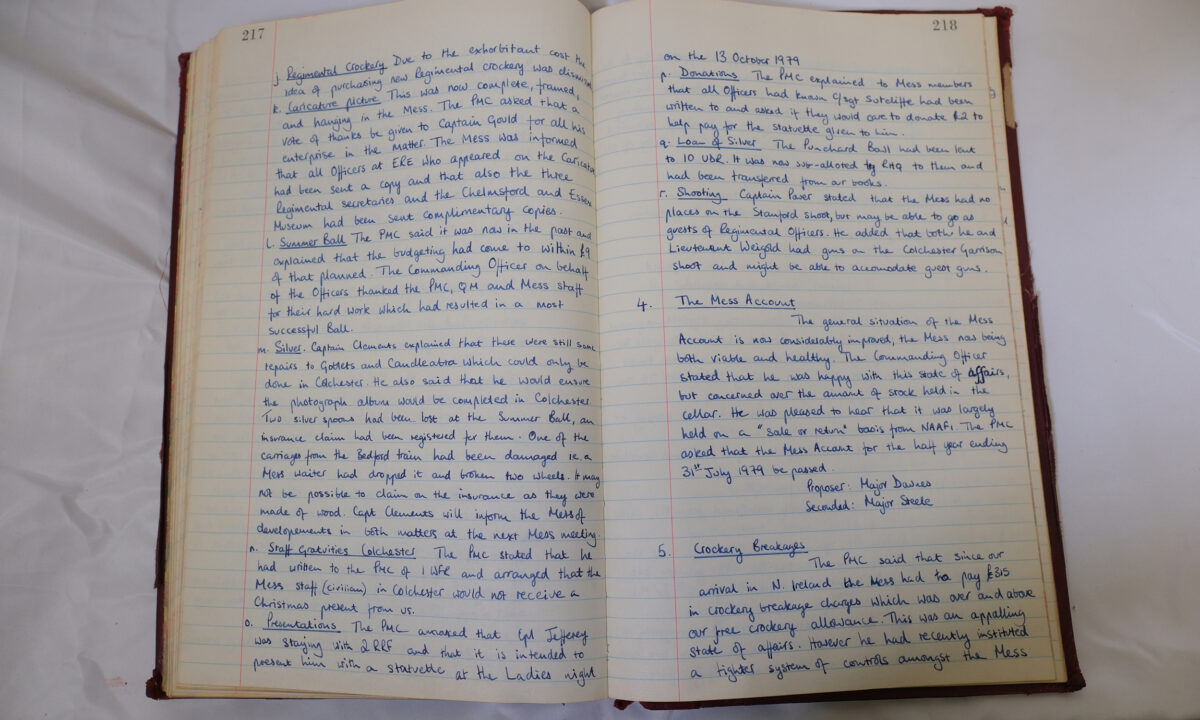 217
j. Regimental Crockery Due to the exhorbitant cost the
idea of purchasing new Regimental crockery was
k. Caricature picture This was now complete, framed,
and hanging in the Mess. The PMC asked that a
vote of thanks be given to Captain Gould for all his
enterprise in the matter. The Mess was informed
that all Officers at ERE who appeared on the
had been sent a copy and that also the three
Regimental secretaries and the Chelmsford and Essex
Museum had been sent complimentary copies.
l. Summer Ball The PMC said it was now in the past and
explained that the budgeting had come to within £9
of that planned. The Commanding Officer on behalf
of the Officers thanked the PMC, QM and Mess staff
for their hard work which had resulted in a most
successful Ball.
m. Silver. Captain Clements explained that there were still some
repairs to Goblets and Candleabra which could only be
done in Colchester. He also said that he would ensure
the photograph album would be completed in Colchester.
Two silver spoons had been lost at the Summer Ball, an
insurance claim had been registered for them. One of the
carriages from the Bedford train had been damaged i.e. a
Mess waiter had dropped it and broken two wheels. It may
not be possible to claim on the insurance as they were
made of wood. Capt Clements will inform the Mess of
developements in both matters at the next Mess meeting.
n. Staff Gratuities Colchester The PMC stated that he
had written to the PMC of 1 WFR and arranged that the
Mess staff (civilian) in Colchester would not receive a
Christmas present from us.
o. Presentations The PMC that Cpl Jefferey
was staying with 2RRF and that it is intended to
present him with a statuette at the Ladies night
218
on the 13 October 1979
p. Donations The PMC explained to Mess members
that all Officers had known C/Sgt Sutcliffe had been
written to and asked if they would care to donate £2 to
help pay for the statuette given to him.
q. Loan of Silver The Punchard Ball had been lent
to 10 UDR. It was now sub-alloted by RHQ to them and
had been transferred from our books.
r. Shooting Captain Paser stated that the Mess had no
places on the Stanford shoot, but may be able to go as
guests of Regimental Officers. He added that both he and
Lieutenant Weigold had guns on the Colchester Garrison
shoot and might be able to accomodate guest guns.
4. The Mess Account
The general situation of the Mess
Account is now considerably improved, the Mess now being
both viable and healthy. The Commanding Officer
stated that he was happy with this state of affairs,
but concerned over the amount of stock held in the
cellar. He was pleased to hear that it was largely
held on a "sale or return" basis from NAAFI. The PMC
asked that the Mess Account for the half year ending
31st July 1979 be passed.
Proposer: Major Downes
Seconded: Major Steele
5. Crockery Breakages
The PMC said that since our
arrival in N. Ireland the Mess had to pay £315
in crockery breakage charges which was over and above
our free crockery allowance. This was an appalling
state of affairs. However he had recently instituted
a tighter system of controls amongst the Mess